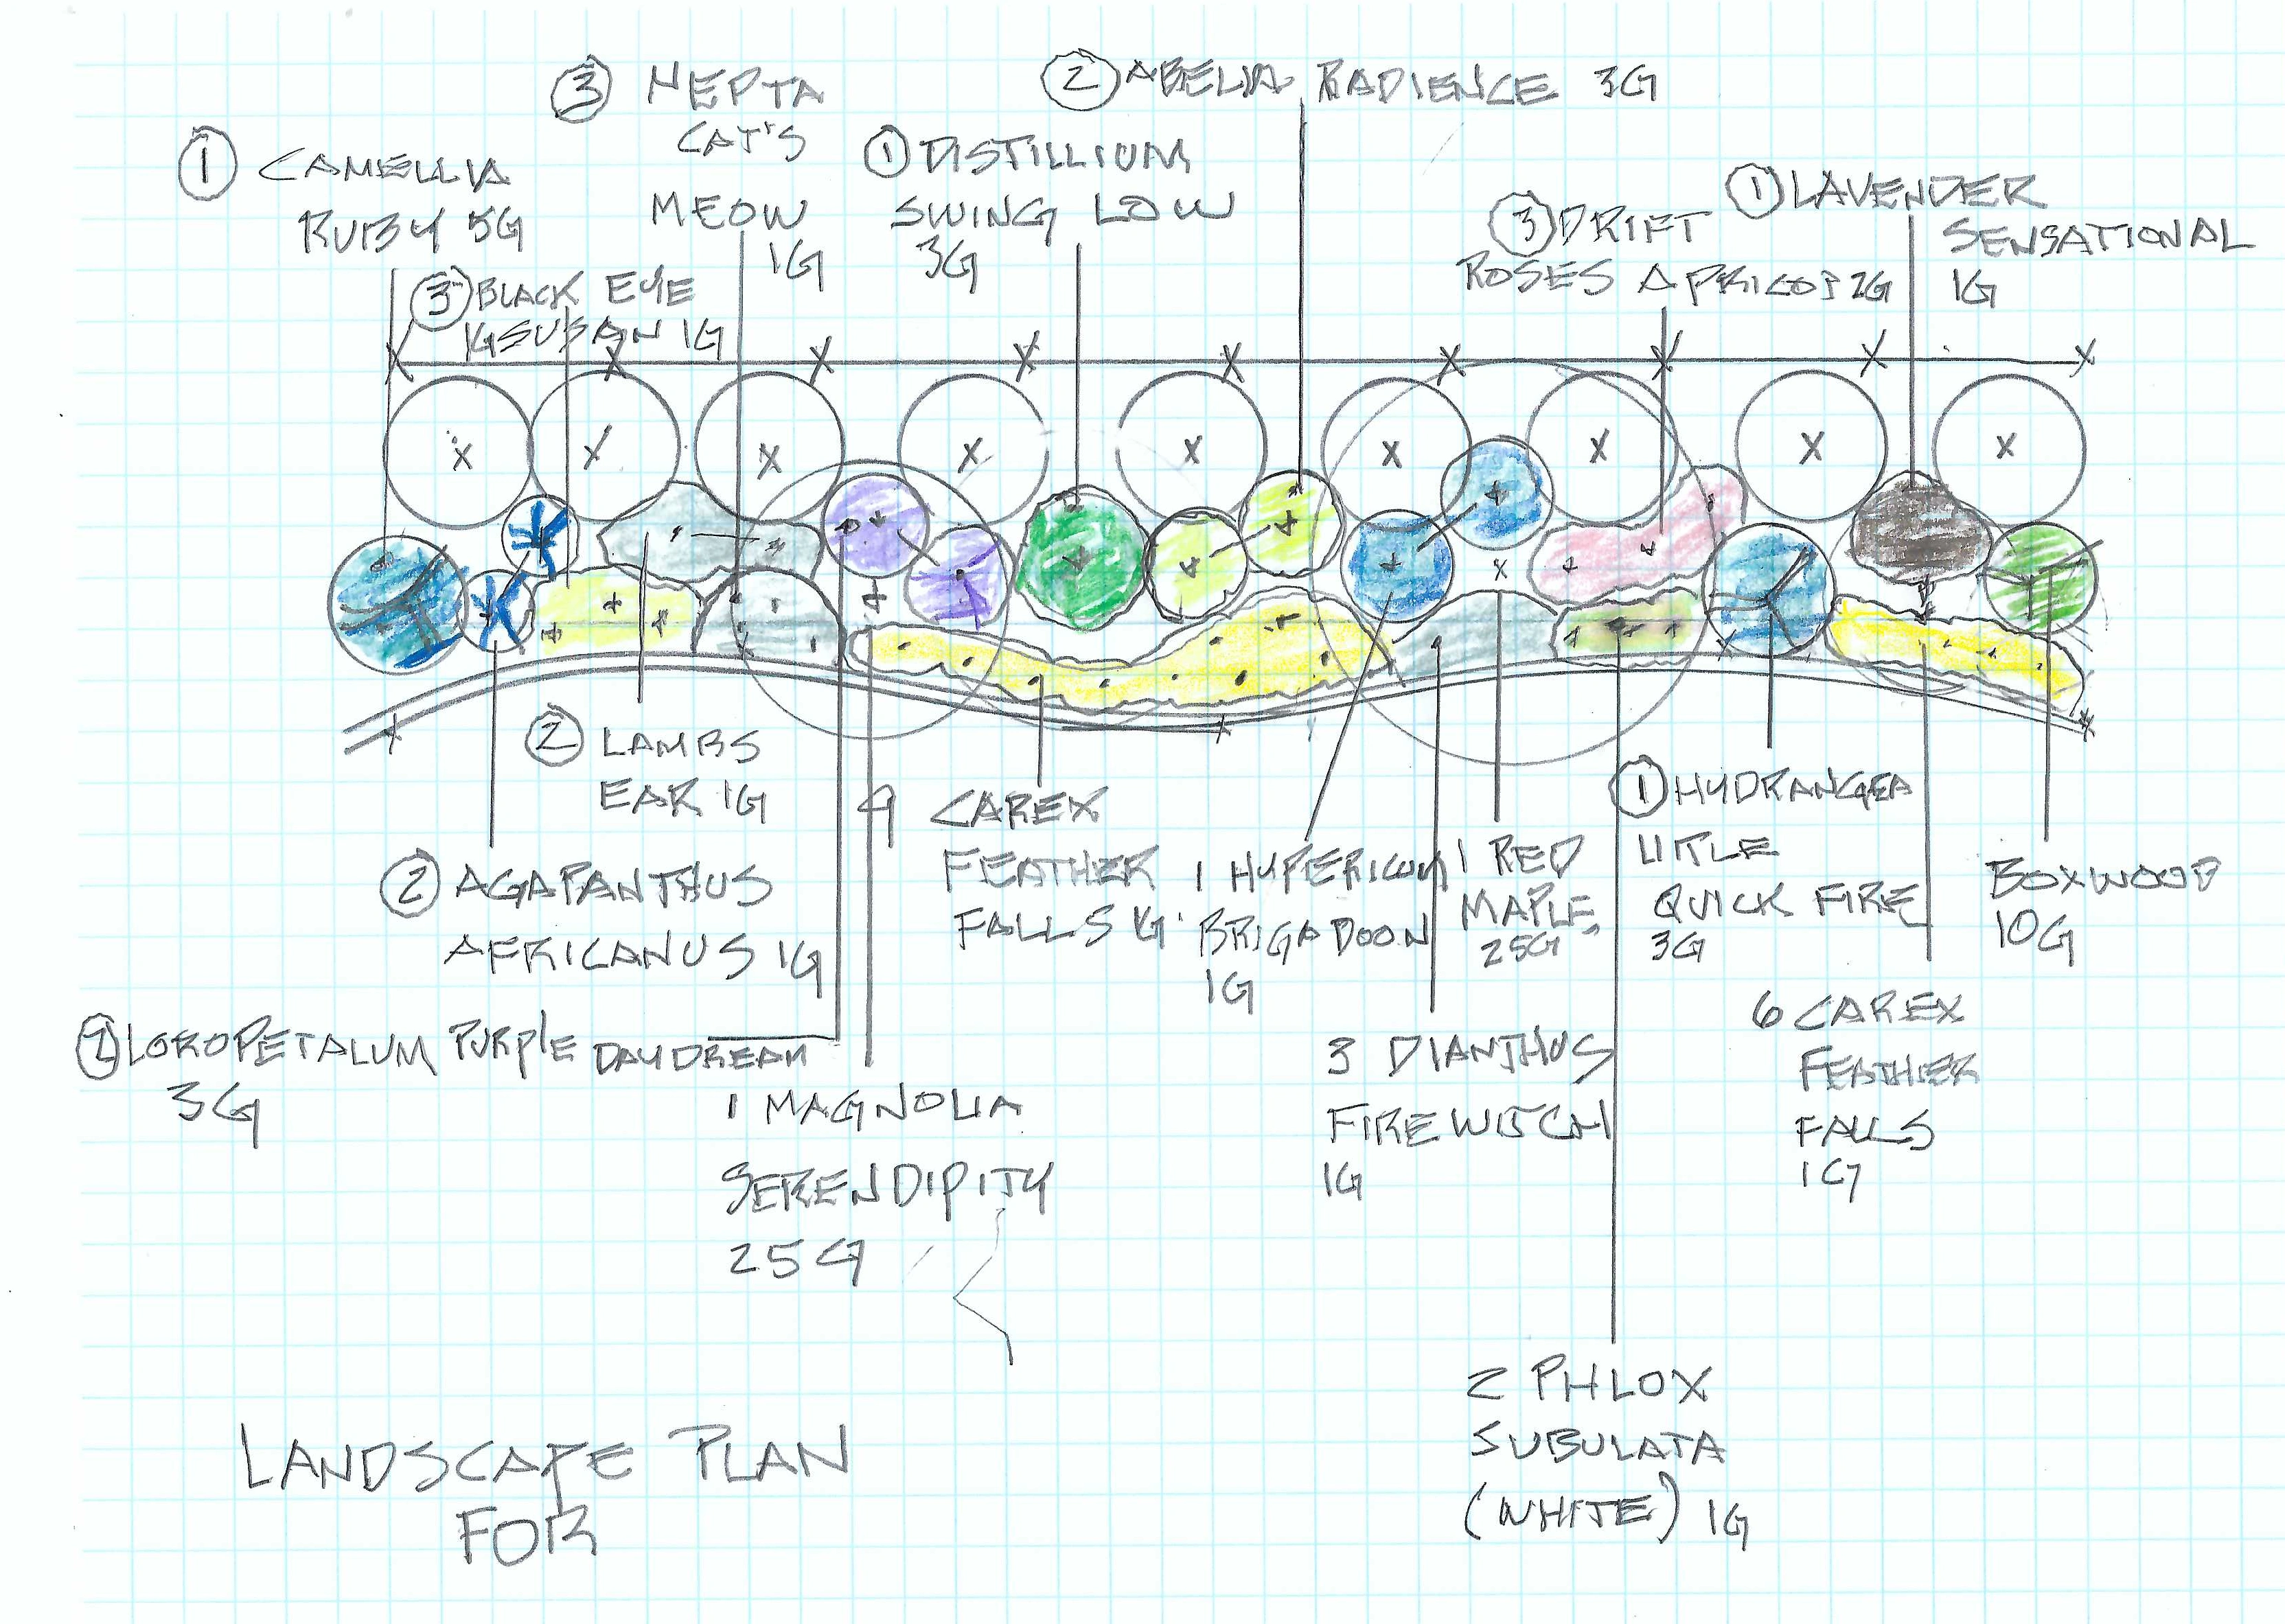 ③ NEPTA
CAT'S
MEOW
1G
② ABELIA RADIENCE 3G
① CAMELLIA
RUBY 5G
① DISTILLIUM
SWING LOW
3G
① LAVENDER
SENSATIONAL
1G
③ DRIFT
ROSES APRICOT 2G
③ BLACK EYE
SUSAN 1G
② LAMBS
EAR 1G
② AGAPANTHUS
AFRICANUS 1G
② LOROPETALUM PURPLE DAYDREAM
3G
1 MAGNOLIA
SERENDIPITY
25G
9 CAREX
FEATHER
FALLS 1G
1 HYPERICUM
BRIGADOON
1G
1 RED
MAPLE
25G
3 DIANTHUS
FIREWITCH
1G
① HYDRANGEA
LITLE
QUICK FIRE
3G
BOXWOOD
10G
6 CAREX
FEATHER
FALLS
1G
2 PHLOX
SUBULATA
(WHITE) 1G
LANDSCAPE PLAN
FOR